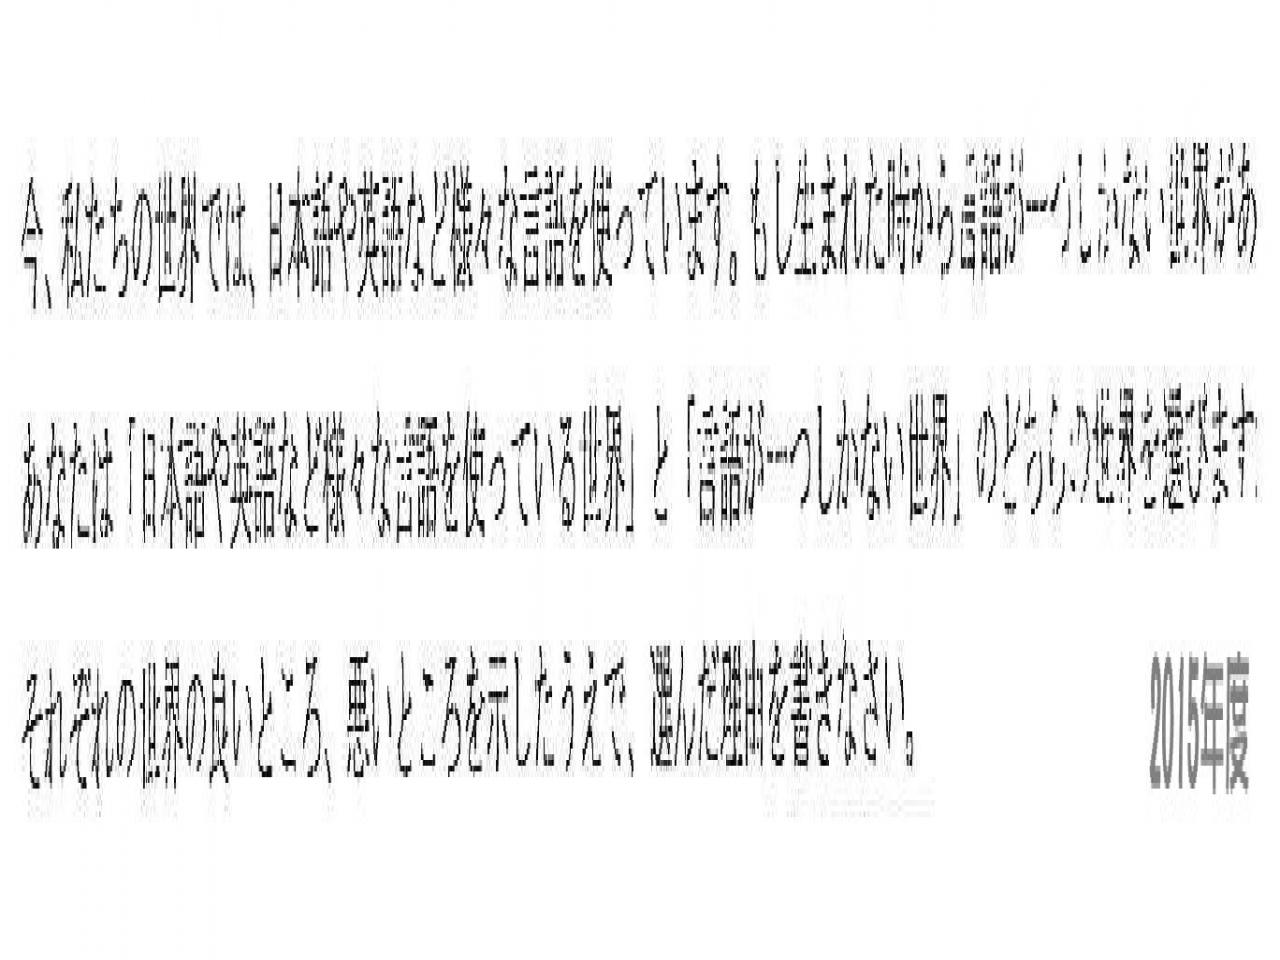 今、私たちの世界では、日本語や英語など様々な言語を使っています。もし生まれた時から言語が一つしかない世界があ
あなたは「日本語や英語など様々な言語を使っている世界」と「言語が一つしかない世界」のどちらの世界を選びます
それぞれの世界の良いところ、悪いところを示したうえで、選んだ理由を書きなさい。
2015年度